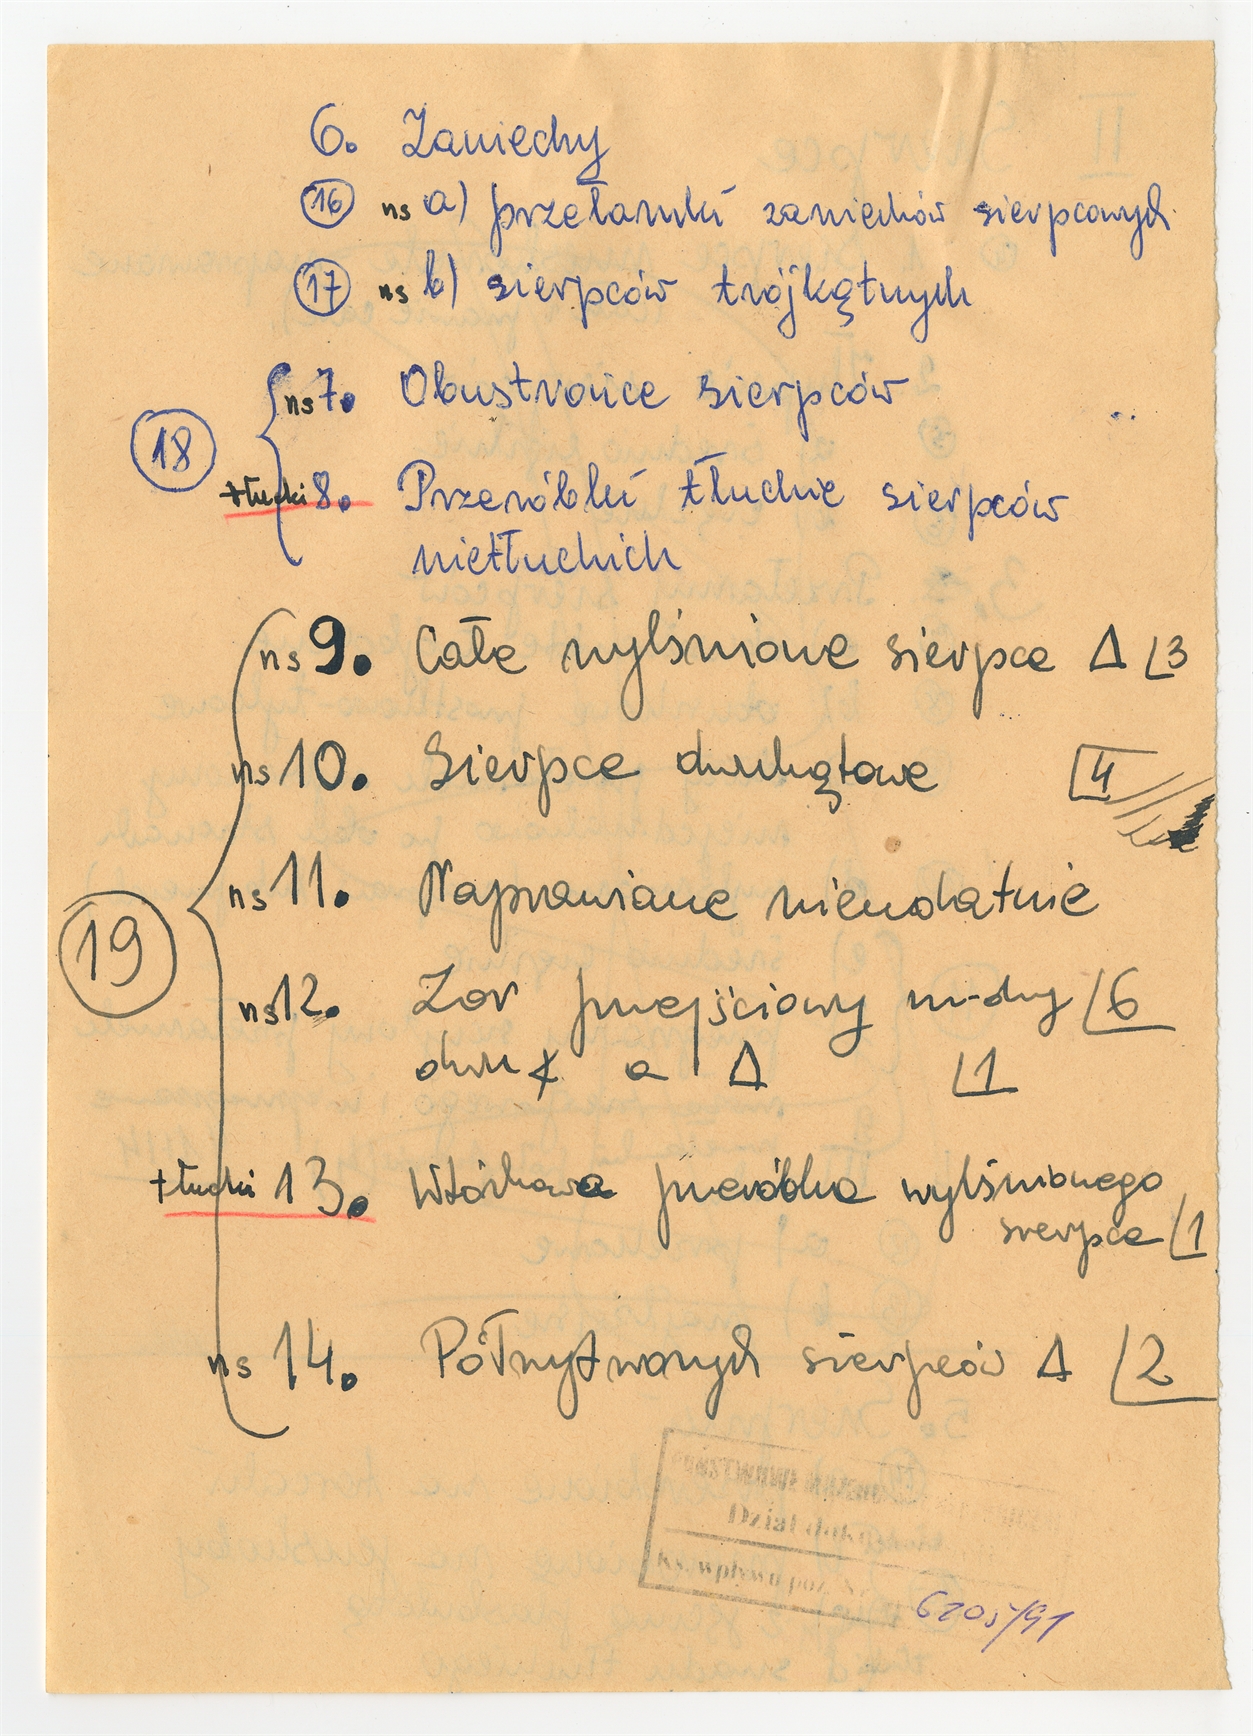 6. Zaniechy
16 ns a) przełamki zaniechów sierpcowych
17 ns b) sierpców trójkątnych
ns 7. Obustronice sierpców
18
tłucki 8. Przeróbki tłuckie sierpców
nietłuckich
ns 9. Całe wyłśnione sierpce Δ 3
ns 10. Sierpce dwukątowe 4
ns 11. Naprawiane nieudatnie
19
ns 12. Zar przejściowy m-dzy 6
dwu∢ a Δ 1
tłucki 13. Wtórkowa przeróbka wyłśnionego
sierpca 1
ns 14. Półwytworzych sierpców Δ 2
PAŃSTWOWE MUZEUM
Dział
Ks. wpływu poz.
6205/91